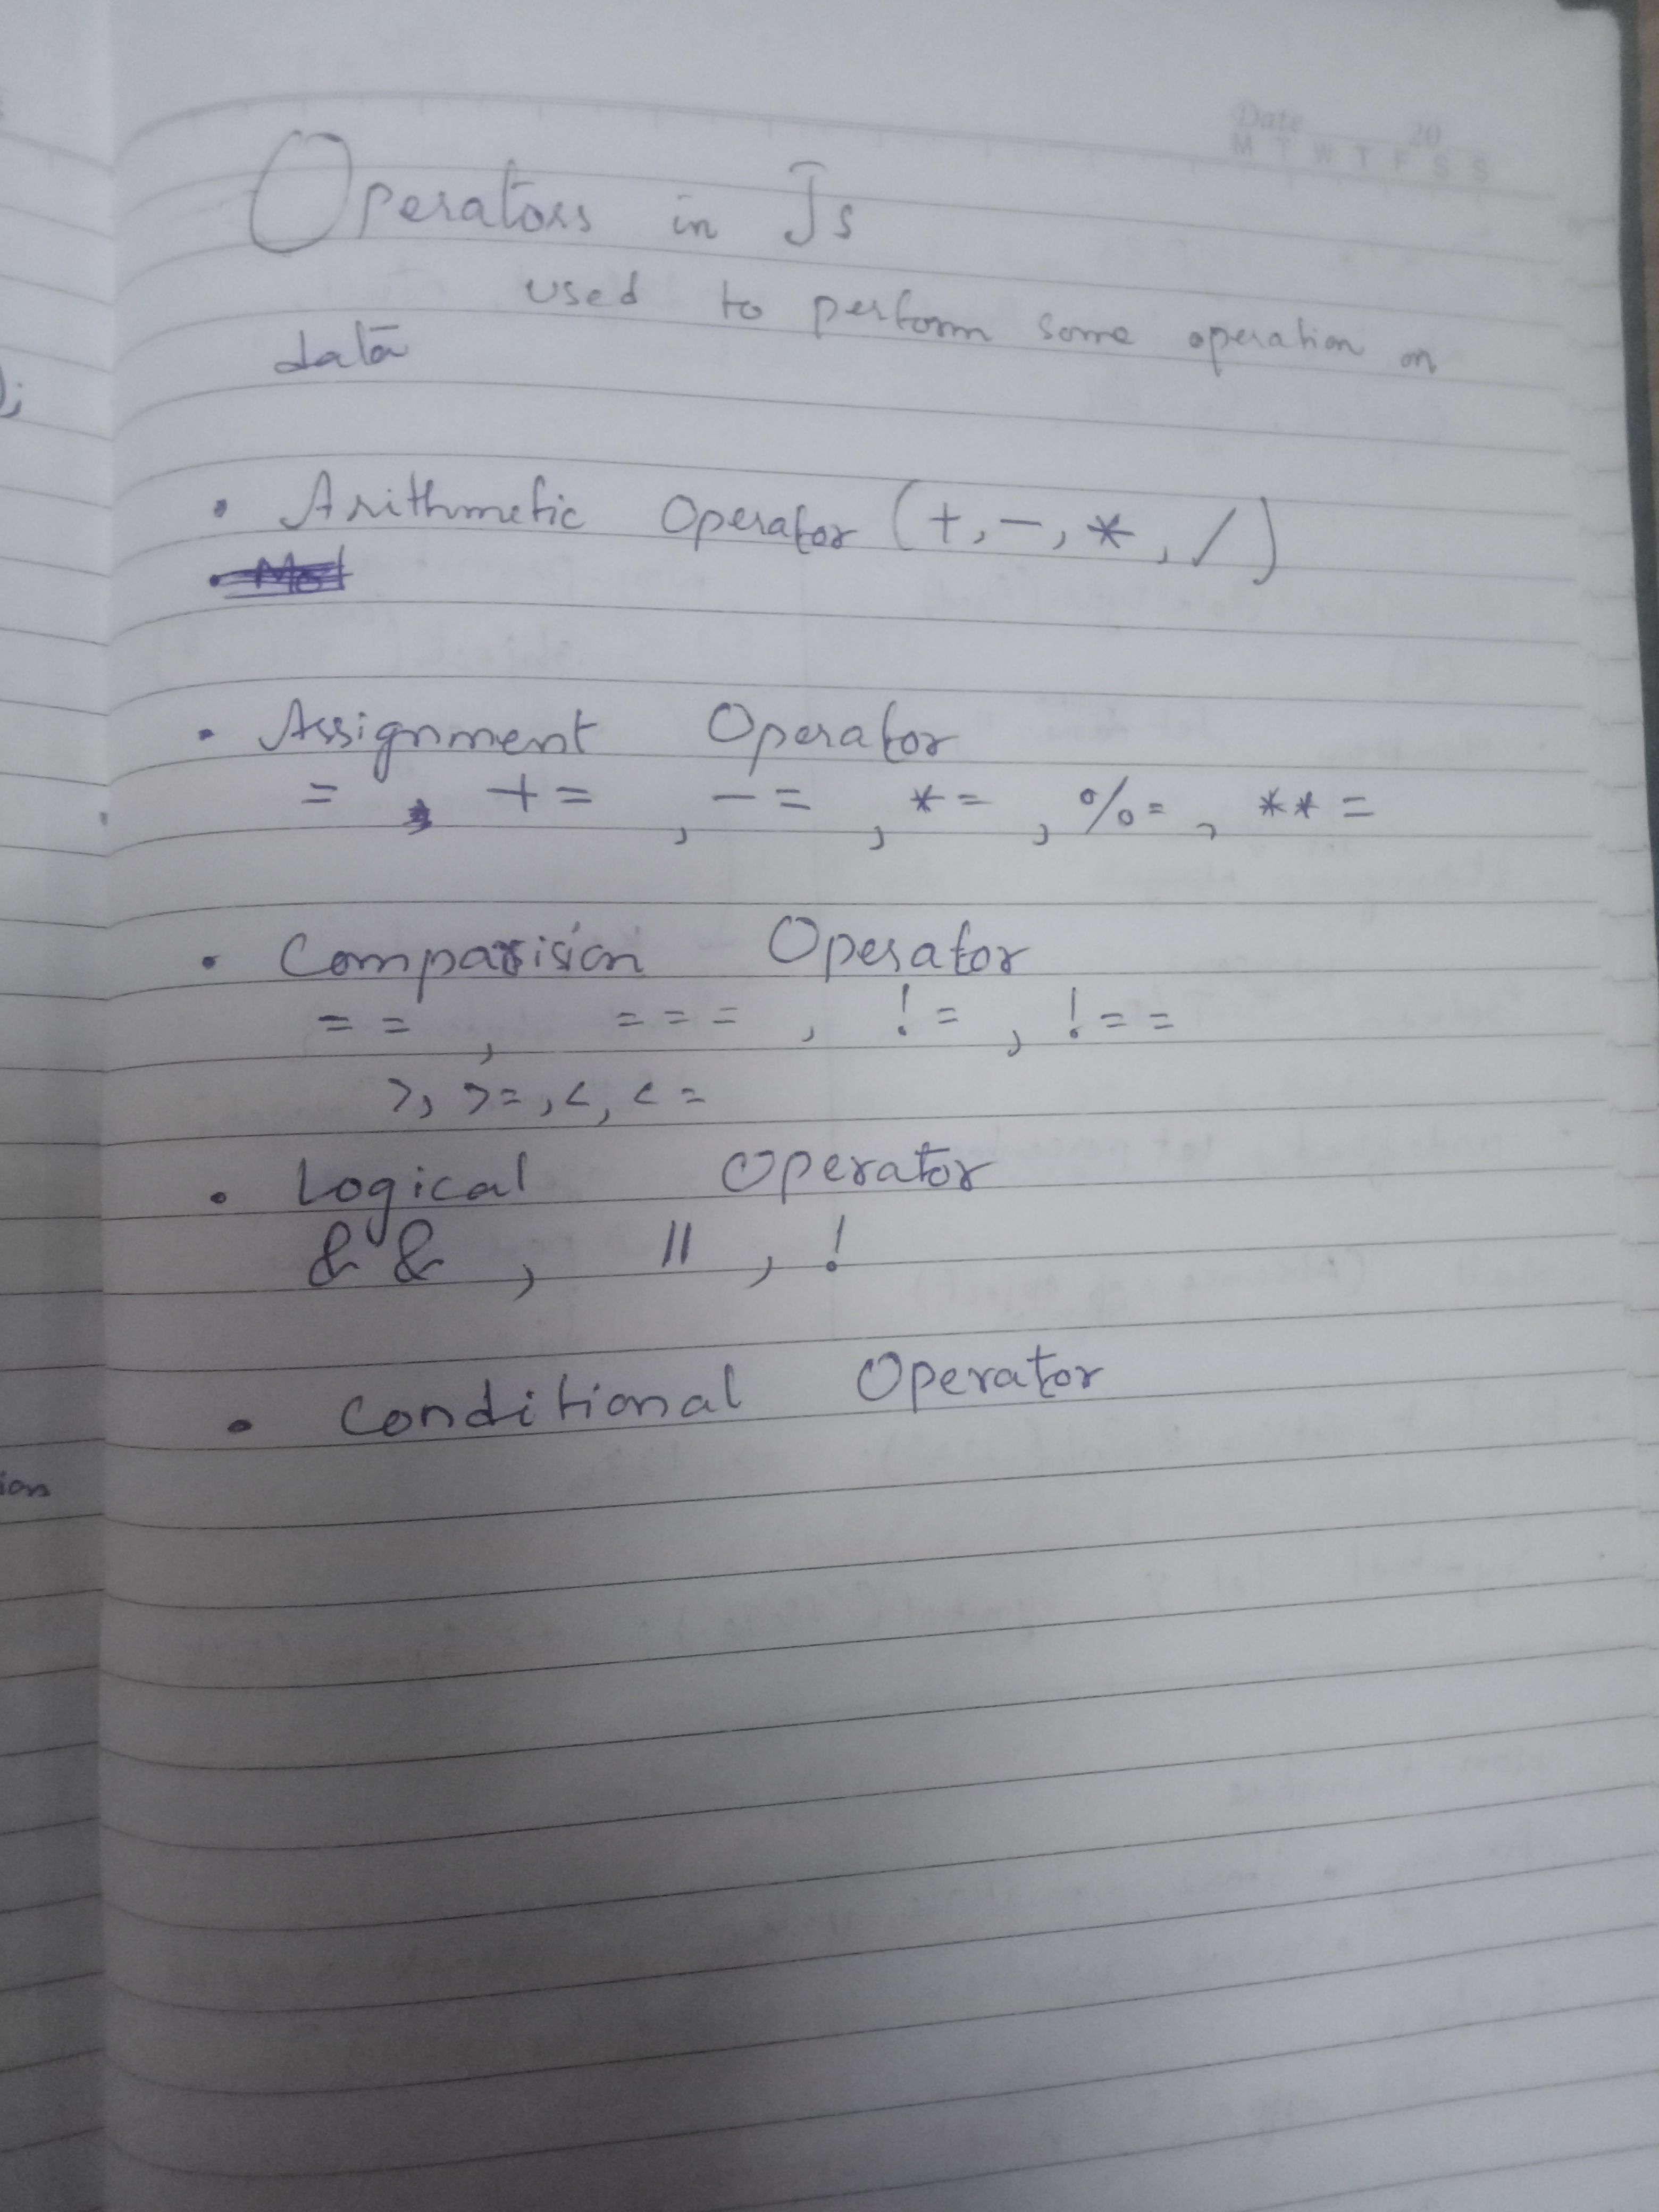 Date 20
M T W T F S S
Operators in Js
used to perform some operation on
data
• Arithmetic Operator (+, -, *, /)
• Assignment Operator
= , += , -= , *= , %= , **=
• Comparision Operator
== , === , != , !==
>, >=, <, <=
• Logical Operator
&& , || , !
• Conditional Operator
ion